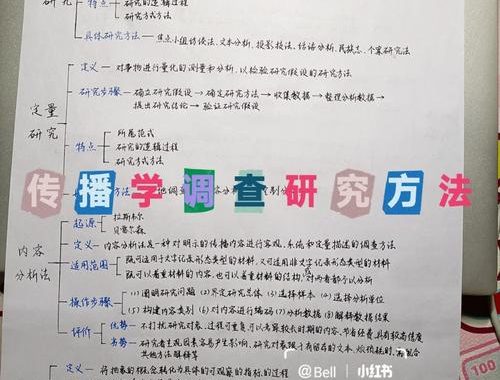 特点
研究的逻辑过程
研究方式方法
具体研究方法 焦点小组访谈法、文本分析、投影技法、话语分析、民族志、个案研究法
定量研究
定义 对事物进行量化的测量和分析,以检验研究假设的研究方法
研究步骤 确立研究假设→确定研究方法→收集数据→整理分析数据→
提出研究结论→验证研究假设
特点
所属范式
研究的逻辑过程
研究方式方法
传播学调查研究方法
内容分析法
起源
拉斯韦尔
贝雷尔森
定义 内容分析法是一种对明示的传播内容进行客观、系统和定量描述的调查方法
适用范围
既可适用于文字记录形态类型的材料,又可适用非文字记录形态类型的材料
既可以着重材料的内容,也可以着重材料的结构,或对两者都予以分析
操作步骤
(1)阐明研究问题 (2)界定研究总体 (3)选择样本 (4)选择分析单位
(5)构建内容类别 (6)对内容进行编码 (7)分析数据 (8)解释数据结果
评价
优势 不打扰研究对象、过程可重复、可以考察较长时期的内容、节省经费、具有较高信度
劣势 研究者主观因素容易产生影响、研究对象限于有留存的文本、烦琐耗时、需配合
其他方法解释等
定义 将抽象的概念转化为具体的可观察的指标的过程
@Bell 小红书
100